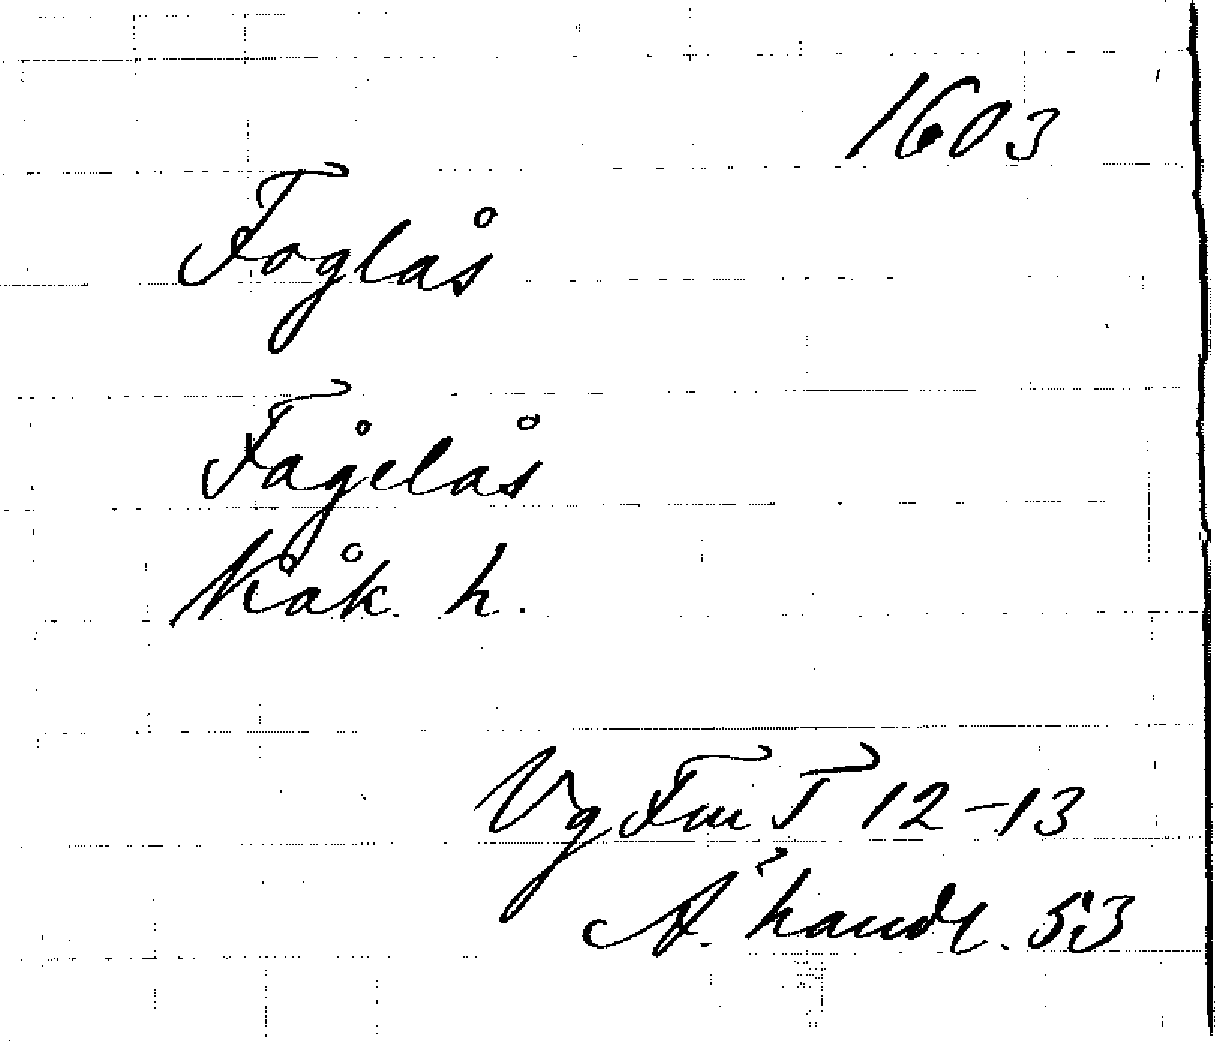 1603
Foglås
Fågelås
Kåk. h.
Vg Fm T 12-13
A. handl. 53